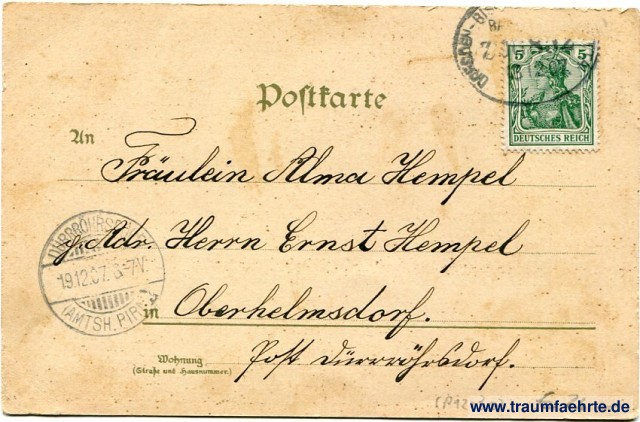 5 5
DEUTSCHES REICH
Postkarte
An
Fräulein Alma Hempel
p. Adr. Herrn Ernst Hempel
19.12.07. 6-7V.
(AMTSH. PIRNA)
in Oberhelmsdorf.
Post Dürrröhrsdorf.
Wohnung
(Straße und Hausnummer)
www.traumfaehrte.de